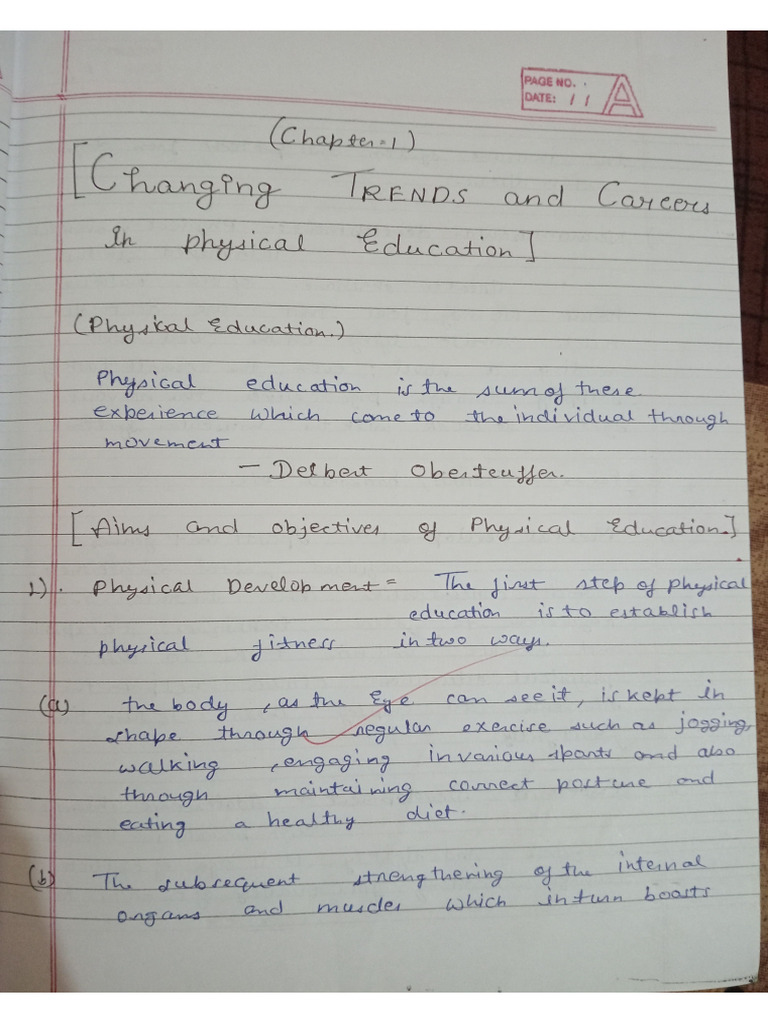 PAGE NO.
DATE: / /
A
(Chapter-1)
[Changing TRENDS and Careers
In physical Education]
(Physical Education.)
Physical education is the sum of these
experience which come to the individual through
movement
- Delbert Oberteuffer.
[Aims and objectives of Physical Education.]
1). Physical Development = The first step of physical
education is to establish
physical fitness in two ways.
(a) the body, as the Eye can see it, is kept in
shape through regular exercise such as jogging,
walking, engaging in various sports and also
through maintaining correct posture and
eating a healthy diet.
(b) The subsequent strengthening of the internal
organs and muscles which in turn boosts